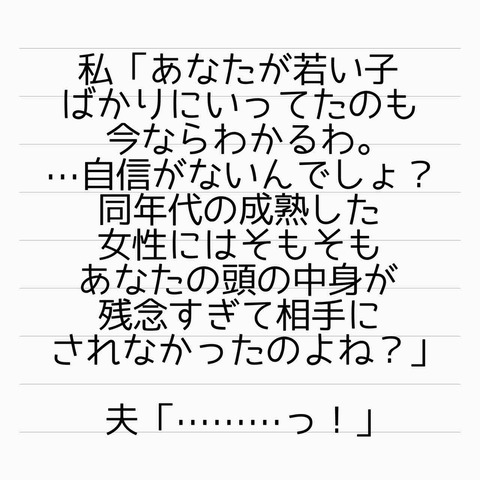 私「あなたが若い子
ばかりにいってたのも
今ならわかるわ。
…自信がないんでしょ？
同年代の成熟した
女性にはそもそも
あなたの頭の中身が
残念すぎて相手に
されなかったのよね？」
夫「………っ！」